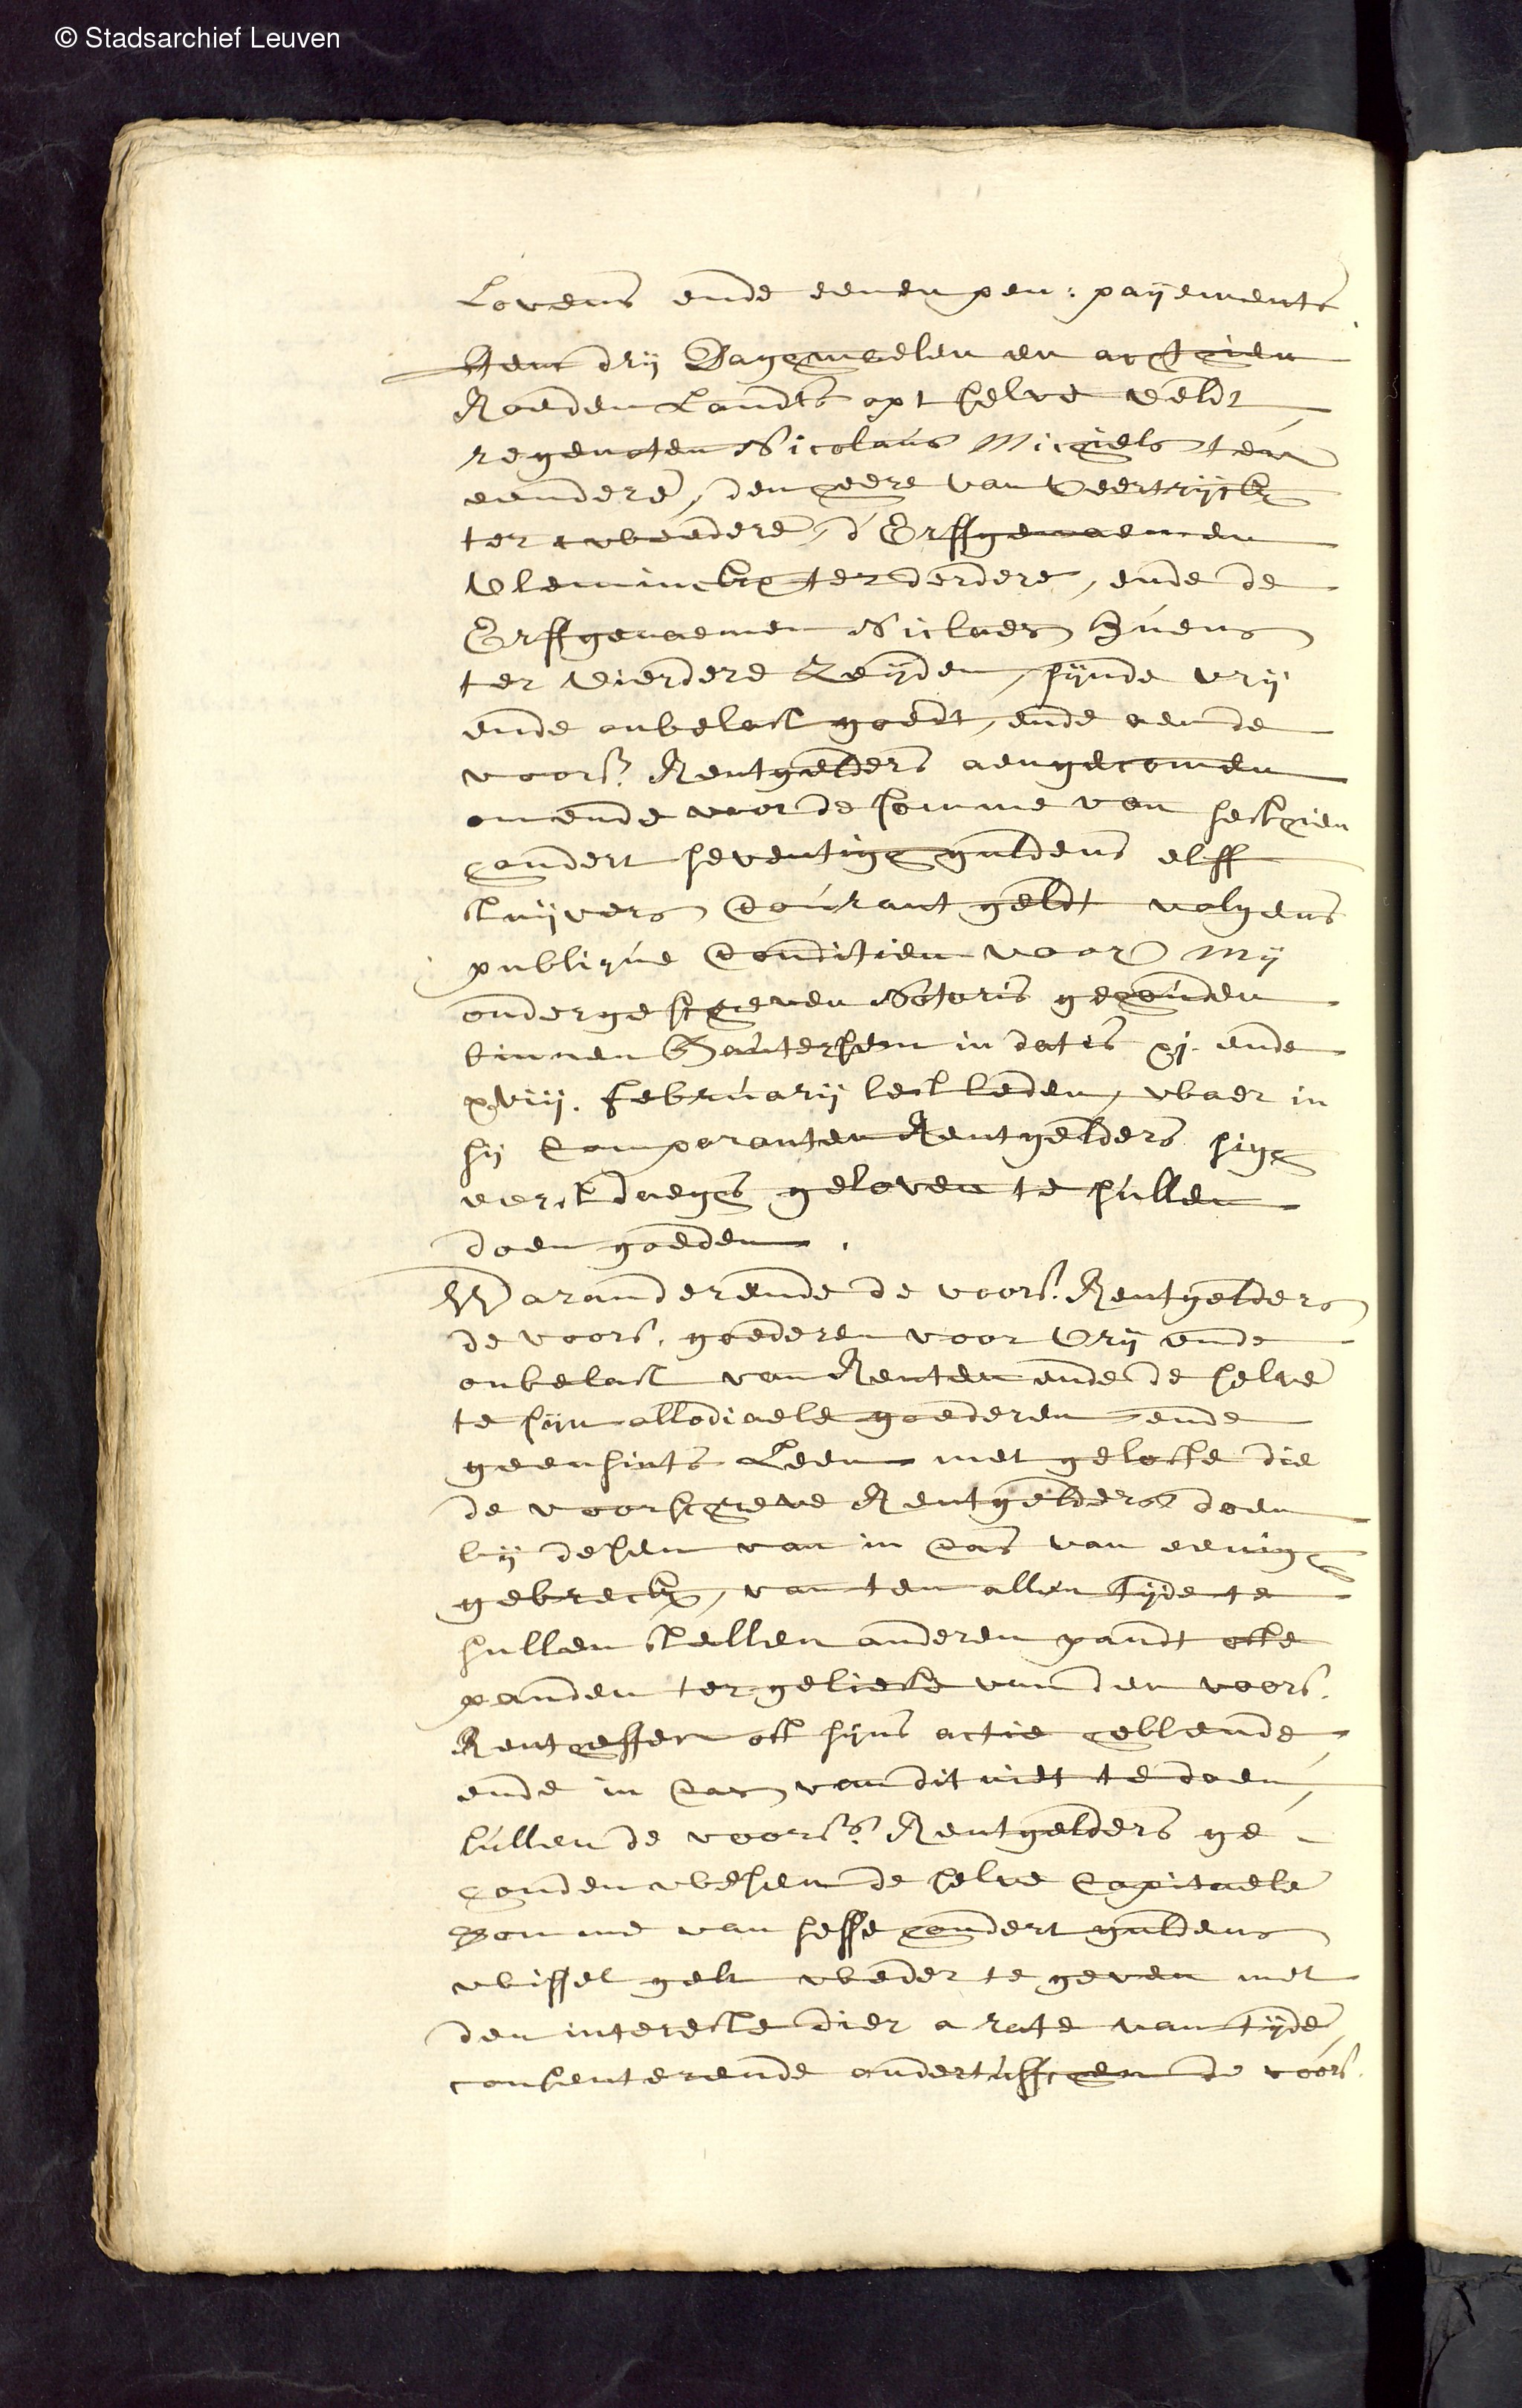 © Stadsarchief Leuven
Lovens ende eenen pen: payements
Item drij Dagemaelen en achthien
Roeden Landts opt selve veldt
regenoten Nicolaus Michiels ter
eendere, den heere van Veertrijck
ter tweedere, d'Erffgenaemen
Vleminckx ter derdere, ende de
Erffgenaemen Niclaes
ter vierdere zeijden, sijnde vrij
ende onbelast goedt, ende aen de
voors. Rentgelders aengecomen
om ende voor de somme van sesthien
hondert seventigh guldens elff
stuijvers Courant geldt volgens
publique Conditien voor mij
ondergeschreven Notaris gehouden
binnen Bautersem in datis xj. ende
xviij. februarij lestleden, waer in
sij Comparanten Rentgelders sigh
eerstdaeghs geloven te sullen
doen goeden.
Waranderende de voors. Rentgelders
de voors. goederen voor vrij ende
onbelast van Renten ende de selve
te sijn allodiaele goederen ende
geensints Leen met gelofte die
de voorschreve Rentgelders doen
bij desen van in Cas van eenigh
gebreckx, van ten allen tijde te
sullen stellen anderen pandt ofte
panden ter geliefte van den voors.
Rentheffer oft sijns actie hebbende,
ende in Cas van dit niet te doen,
sullen de voors. Rentgelders ge-
houden wesen de selve Capitaele
Somme van sesse hondert guldens
wissel gelt weder te geven met
den intereste dier a rate van tijde,
consenterende ondertusschen de voors.